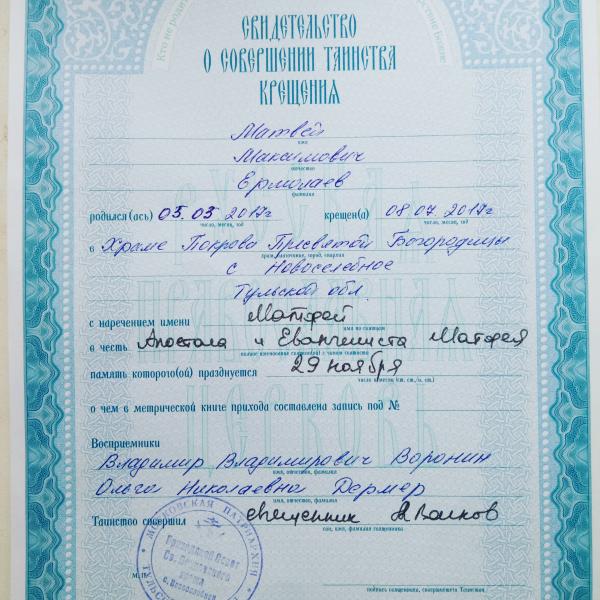 Кто не родится
СВИДЕТЕЛЬСТВО
О СОВЕРШЕНИИ ТАИНСТВА
КРЕЩЕНИЯ
Матвей
имя
Максимович
отчество
Ермолаев
фамилия
родился(ась) 05 03 2017г крещен(а) 08 07 2017г
число, месяц, год число, месяц, год
в Храме Покрова Присвятой Богородицы
с Новоселебное
Тульской обл.
с наречением имени Матфей
имя по святцам
в честь Апостола и Евангелиста Матфея
память которого(ой) празднуется 29 ноября
число и месяц (ст. ст., н. ст.)
о чем в метрической книге прихода составлена запись под №
Восприемники
Владимир Владимирович Воронин
имя, отчество, фамилия
Ольга Николаевна Дермер
имя, отчество, фамилия
Таинство совершил священник А Волков
сан, имя, фамилия священника
МОСКОВСКАЯ ПАТРИАРХИЯ
Приходской Совет
Св. Покровского
храма
с. Новоселебное
м.п.
подпись священника, совершившего Таинство